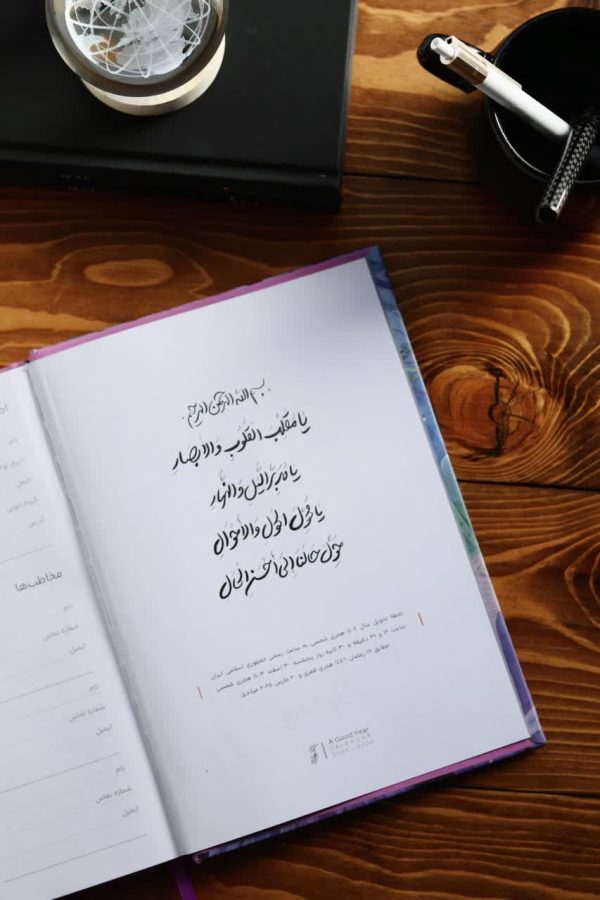 بسم الله الرحمن الرحیم
یا مقلب القلوب والابصار
یا مدبر اللیل والنهار
یا محول الحول والاحوال
حول حالنا الی احسن الحال
لحظه تحویل سال ۱۴۰۴ هجری شمسی به ساعت رسمی جمهوری اسلامی ایران
ساعت ۱۲ و ۳۱ دقیقه و ۳۰ ثانیه روز پنجشنبه ۳۰ اسفند ۱۴۰۳ هجری شمسی
مطابق ۱۹ رمضان ۱۴۴۶ هجری قمری و ۲۰ مارس ۲۰۲۵ میلادی
A Good Year
CALENDAR
2025 - 2026
نام
گروه خونی
آدرس
مخاطب‌ها
نام
شماره تماس
ایمیل
نام
شماره تماس
ایمیل
نام
شماره تماس
ایمیل